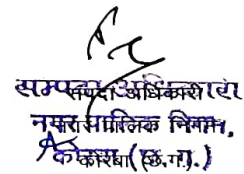 सम्पदा अधिकारी
नगर पालिक निगम,
कोरबा (छ.ग.)